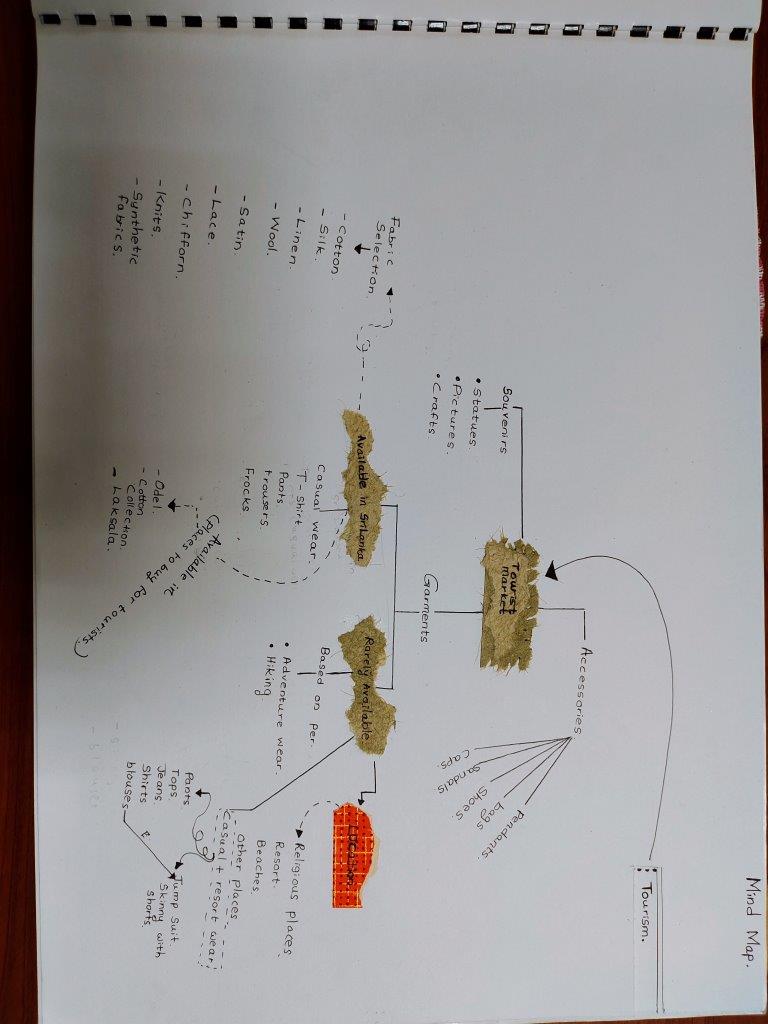 Mind Map.
Tourism.
Accessories
Pendants.
bags
Shoes.
Sandals
Caps.
Tourist
market
Souvenirs
• Statues.
• Pictures.
• Crafts.
Garments
Available in SriLanka
Rarely Available
Location
Fabric
Selection.
- Cotton
- Silk.
- Linen.
- Wool.
- Satin.
- Lace.
- Chifforn.
- Knits.
- Synthetic
fabrics.
Casual wear.
T-Shirt
Pants.
trousers.
Frocks
Available in
(Places to buy for tourists.)
- Odel.
- Cotton
Collection.
- Laksala.
Based on Per.
• Adventure wear.
• Hiking.
Religious places
Resort.
Beaches.
Other places
Casual + resort wear
Pants.
Tops.
Jeans
Shirts
blouses
Jump Suit.
Skinny with
shorts.